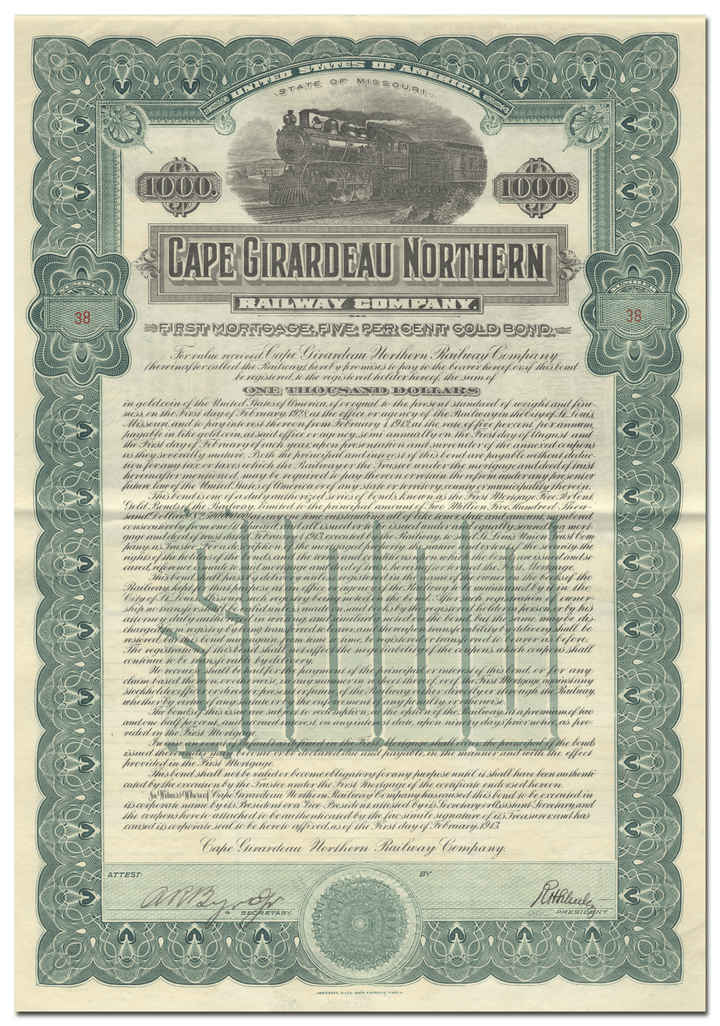 UNITED STATES OF AMERICA
STATE OF MISSOURI
1000. 1000.
CAPE GIRARDEAU NORTHERN
RAILWAY COMPANY.
NUMBER NUMBER
38 38
FIRST MORTGAGE, FIVE PER CENT GOLD BOND.
For value received Cape Girardeau Northern Railway Company
(hereinafter called the Railway) hereby promises to pay to the bearer hereof, or if this bond
be registered, to the registered holder hereof, the sum of
ONE THOUSAND DOLLARS
in gold coin of the United States of America, of or equal to the present standard of weight and fine-
ness, on the First day of February 1928, at the office or agency of the Railway in the City of St. Louis,
Missouri, and to pay interest thereon from February 1, 1913, at the rate of five per cent. per annum,
payable in like gold coin, at said office or agency, semi annually on the First day of August and
the First day of February of each year, upon presentation and surrender of the annexed coupons
as they severally mature. Both the principal and interest of this bond are payable without deduc-
tion for any tax or taxes which the Railway or the Trustee under the mortgage and deed of trust
hereinafter mentioned, may be required to pay thereon or retain therefrom under any present or
future law of the United States of America, or of any state or territory, county or municipality therein.
This bond is one of a duly authorized series of bonds known as the First Mortgage Five Per Cent
Gold Bonds of the Railway, limited to the principal amount of Two Million Five Hundred Thou-
sand Dollars at any one time outstanding, all of like tenor, date and amount, numbered
consecutively from one upward, and all issued or to be issued under and equally secured by a mort-
gage and deed of trust dated February 1, 1913, executed by the Railway, to said St. Louis Union Trust Com-
pany, as Trustee. For a description of the mortgaged property, the nature and extent of the security, the
rights of the holders of the bonds, and the terms and conditions upon which the bonds are issued and se-
cured, reference is made to said mortgage and deed of trust, hereinafter termed the First Mortgage.
This bond shall pass by delivery unless registered in the name of the owner on the books of the
Railway kept for that purpose at an office or agency of the Railway to be maintained by it in the
City of St. Louis, Missouri, such registry being noted on the bond. After such registration of owner-
ship no transfer shall be valid unless made on said books by the registered holder in person or by his
attorney duly authorized in writing, and similarly noted on the bond, but the same may be dis-
charged from registry by being transferred to bearer, and thereupon transferability by delivery shall be
restored, but this bond may again, from time to time, be registered or transferred to bearer as before.
The registration of this bond shall not affect the negotiability of the coupons, which coupons shall
continue to be transferable by delivery.
No recourse shall be had for the payment of the principal or interest of this bond, or for any
claim based thereon or otherwise, in any manner in respect thereof, or of the First Mortgage, against any
stockholder, officer or director, present or future, of the Railway, either directly or through the Railway,
whether by virtue of any statute or by the enforcement of any penalty or otherwise.
The bonds of this issue are subject to redemption at the option of the Railway, at a premium of two
and one half per cent. and accrued interest, on any interest date, upon ninety days prior notice, as pro-
vided in the First Mortgage.
In case of default as defined in the First Mortgage shall occur, the principal of the bonds
issued thereunder may become or be declared due and payable, in the manner and with the effect
provided in the First Mortgage.
This bond shall not be valid or become obligatory for any purpose until it shall have been authenti-
cated by the execution by the Trustee under the First Mortgage of the certificate endorsed hereon.
In Witness Whereof Cape Girardeau Northern Railway Company has caused this bond to be executed in
its corporate name by its President or a Vice President, attested by its Secretary or Assistant Secretary, and
the coupons hereto attached to be authenticated by the facsimile signature of its Treasurer and has
caused its corporate seal to be hereto affixed, as of the First day of February, 1913.
Cape Girardeau Northern Railway Company.
ATTEST: BY
SECRETARY. PRESIDENT.
$1000